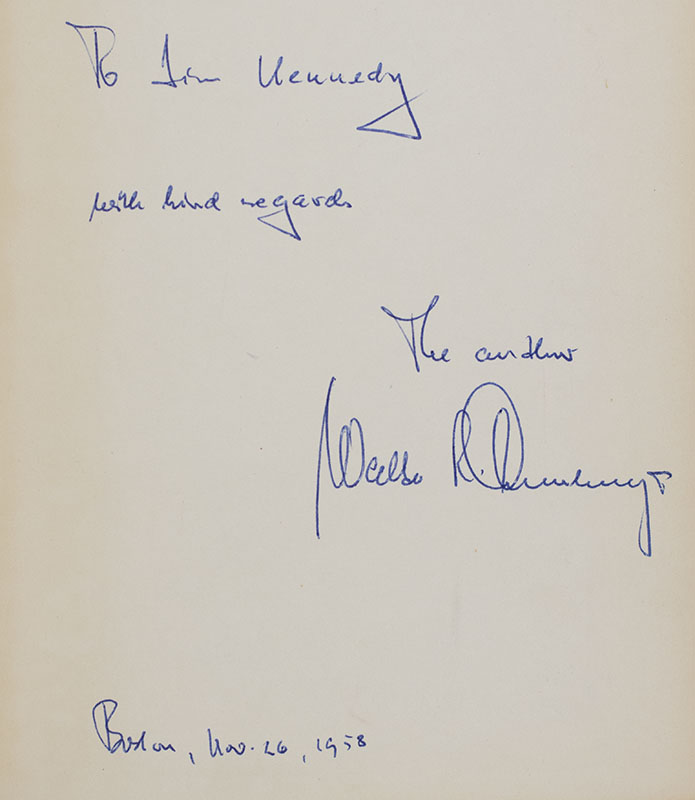 To Jim Kennedy
with kind regards
The author
Walter R. Dornberger
Boston, Nov. 26, 1958